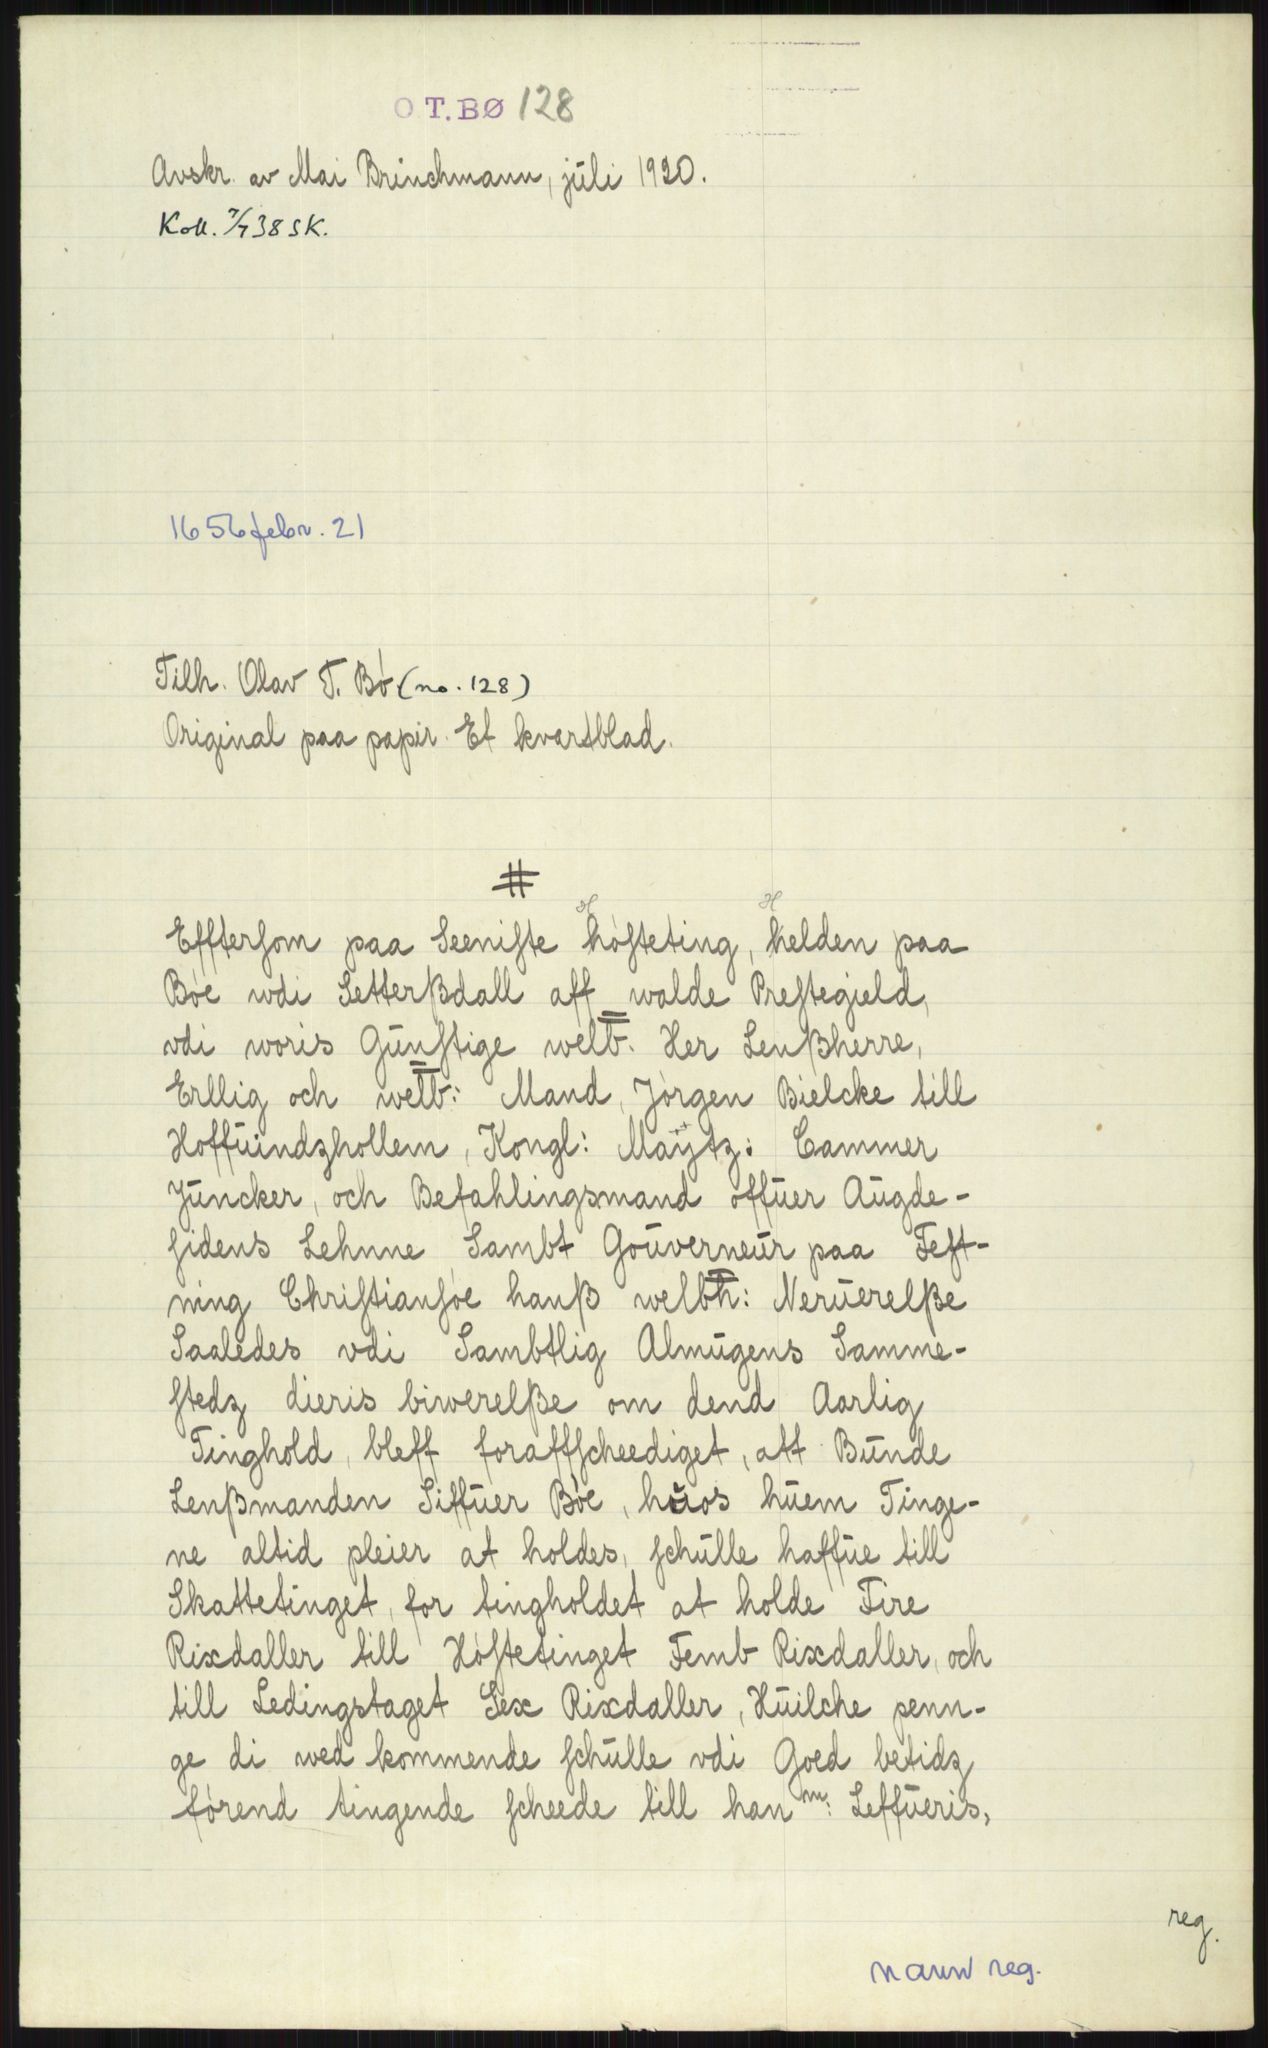 O T. BØ 128
Avskr. av Mai Brinchmann, juli 1920.
Koll. 7/7 38 SK.
1656 febr. 21
Tilh. Olav T. Bø (no. 128)
Original paa papir. Et kvartblad.
#
Efftersom paa Seeniste høsteting, helden paa
Bøe wdi Setterßdall aff walde Prestegield,
vdi woris Günstige welb. Her Lenßherre,
Erllig och welb: Mand, Jørgen Bielcke till
Hoffuindzhollem, Kongl: Maÿtz: Cammer
Juncker, och Befahlingsmand offuer Augde-
sidens Lehnne, Sambt Gouverneur paa Fest-
ning Christiansøe hanß welbh: Neruerelße
Saaledes vdi Sambtlig Almugens Samme-
stedz dieris biwerelße om dend Aarlig
Tinghold, bleff foraffscheediget, att Bunde
Lenßmanden Siffuer Bøe, huos huem Tinge-
ne altid pleier at holdes, schulle haffue till
Skattetinget, for tingholdet at holde Fire
Rixdaller till Høstetinget Femb Rixdaller, och
till Ledingstaget Sex Rixdaller, Huilche penn-
ge di wed kommende schulle vdi Goed betidz
førend tingende scheede till han m: Leffueris,
reg.
navn reg.